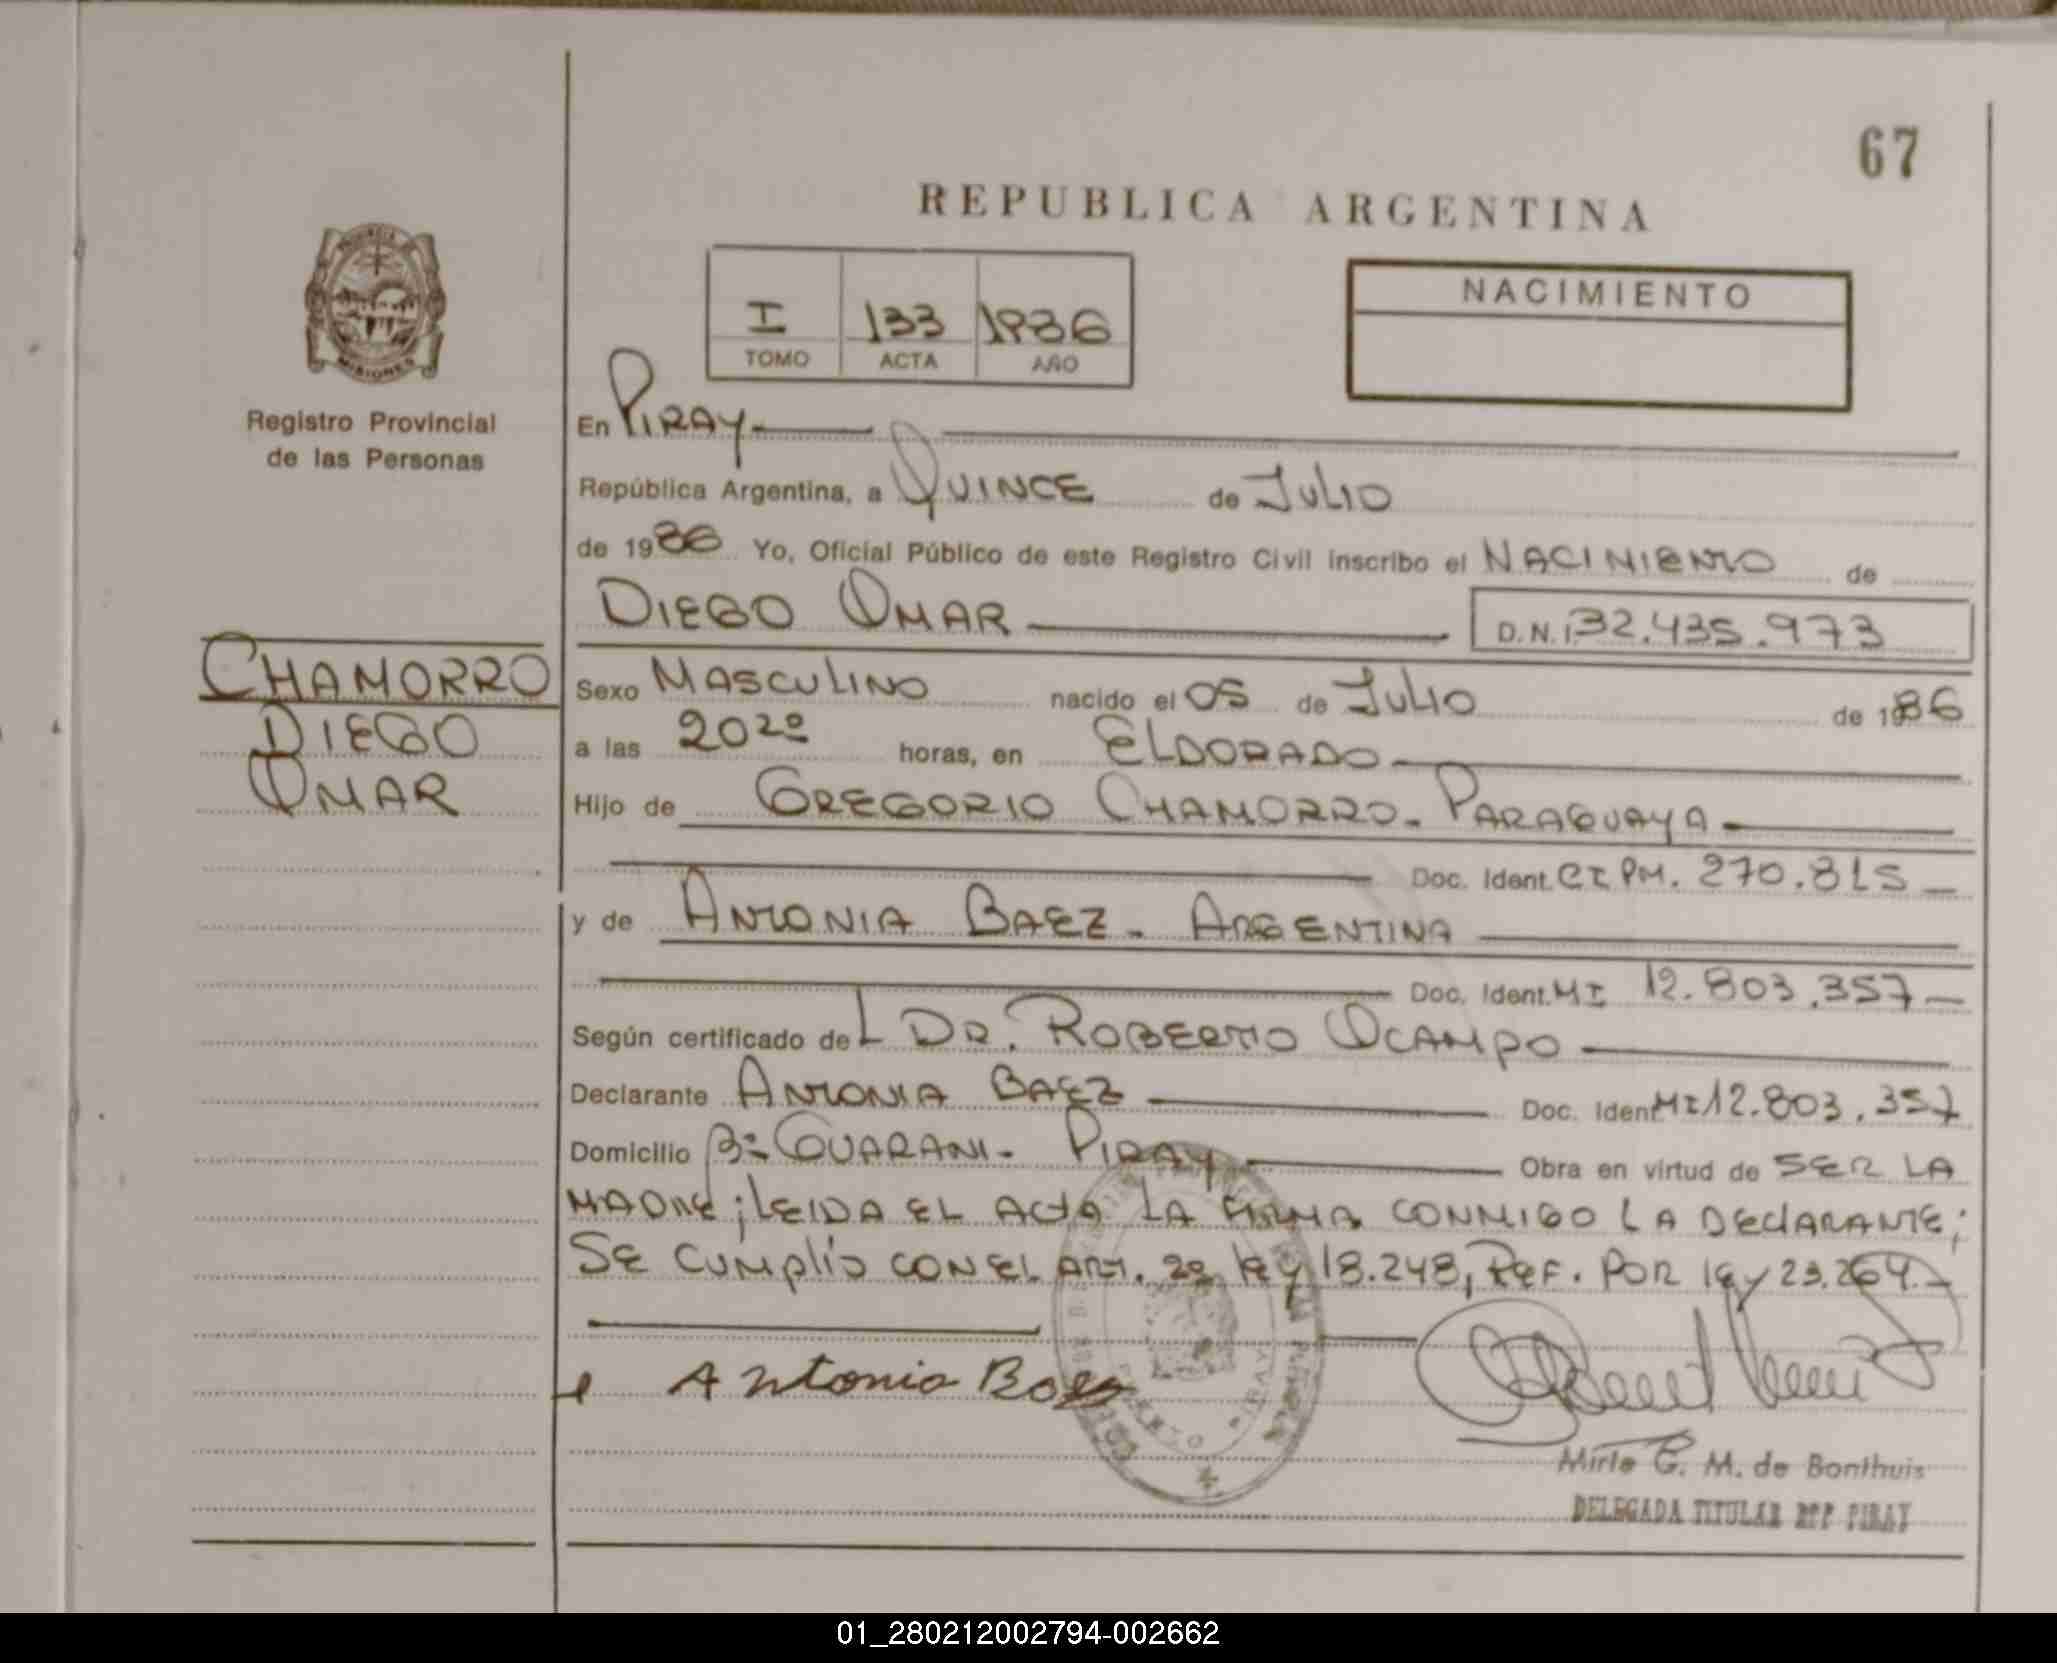 67
REPUBLICA ARGENTINA
PROVINCIA DE
MISIONES
Registro Provincial
de las Personas
I 133 1986
TOMO ACTA AÑO
NACIMIENTO
En PIRAY
República Argentina, a QUINCE de JULIO
de 1986 Yo, Oficial Público de este Registro Civil inscribo el NACIMIENTO de
DIEGO OMAR D.N.I. 32.435.973
CHAMORRO
DIEGO
OMAR
Sexo MASCULINO nacido el 05 de JULIO de 1986
a las 20²⁰ horas, en ELDORADO
Hijo de GREGORIO CHAMORRO - PARAGUAYA
Doc. Ident. CI PM. 270.815
y de ANTONIA BAEZ - ARGENTINA
Doc. Ident. MI 12.803.357
Según certificado de L DR. ROBERTO OCAMPO
Declarante ANTONIA BAEZ Doc. Ident. MI 12.803.357
Domicilio Bº GUARANI - PIRAY Obra en virtud de SER LA
MADRE; LEIDA EL ACTA LA FIRMA CONMIGO LA DECLARANTE;
SE CUMPLIÓ CON EL ART. 2º LEY 18.248, REF. POR LEY 23.264.
Antonia Baez
Mirta C. M. de Bonthuis
DELEGADA TITULAR RPP PIRAY
01_280212002794-002662